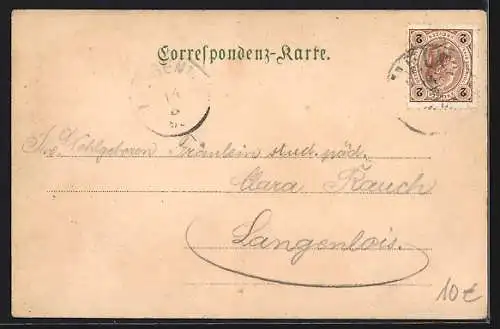 Correspondenz-Karte.
2 2
Wohlgeboren Fräulein stud. päd.
Clara Rauch
Langenlois.
10€